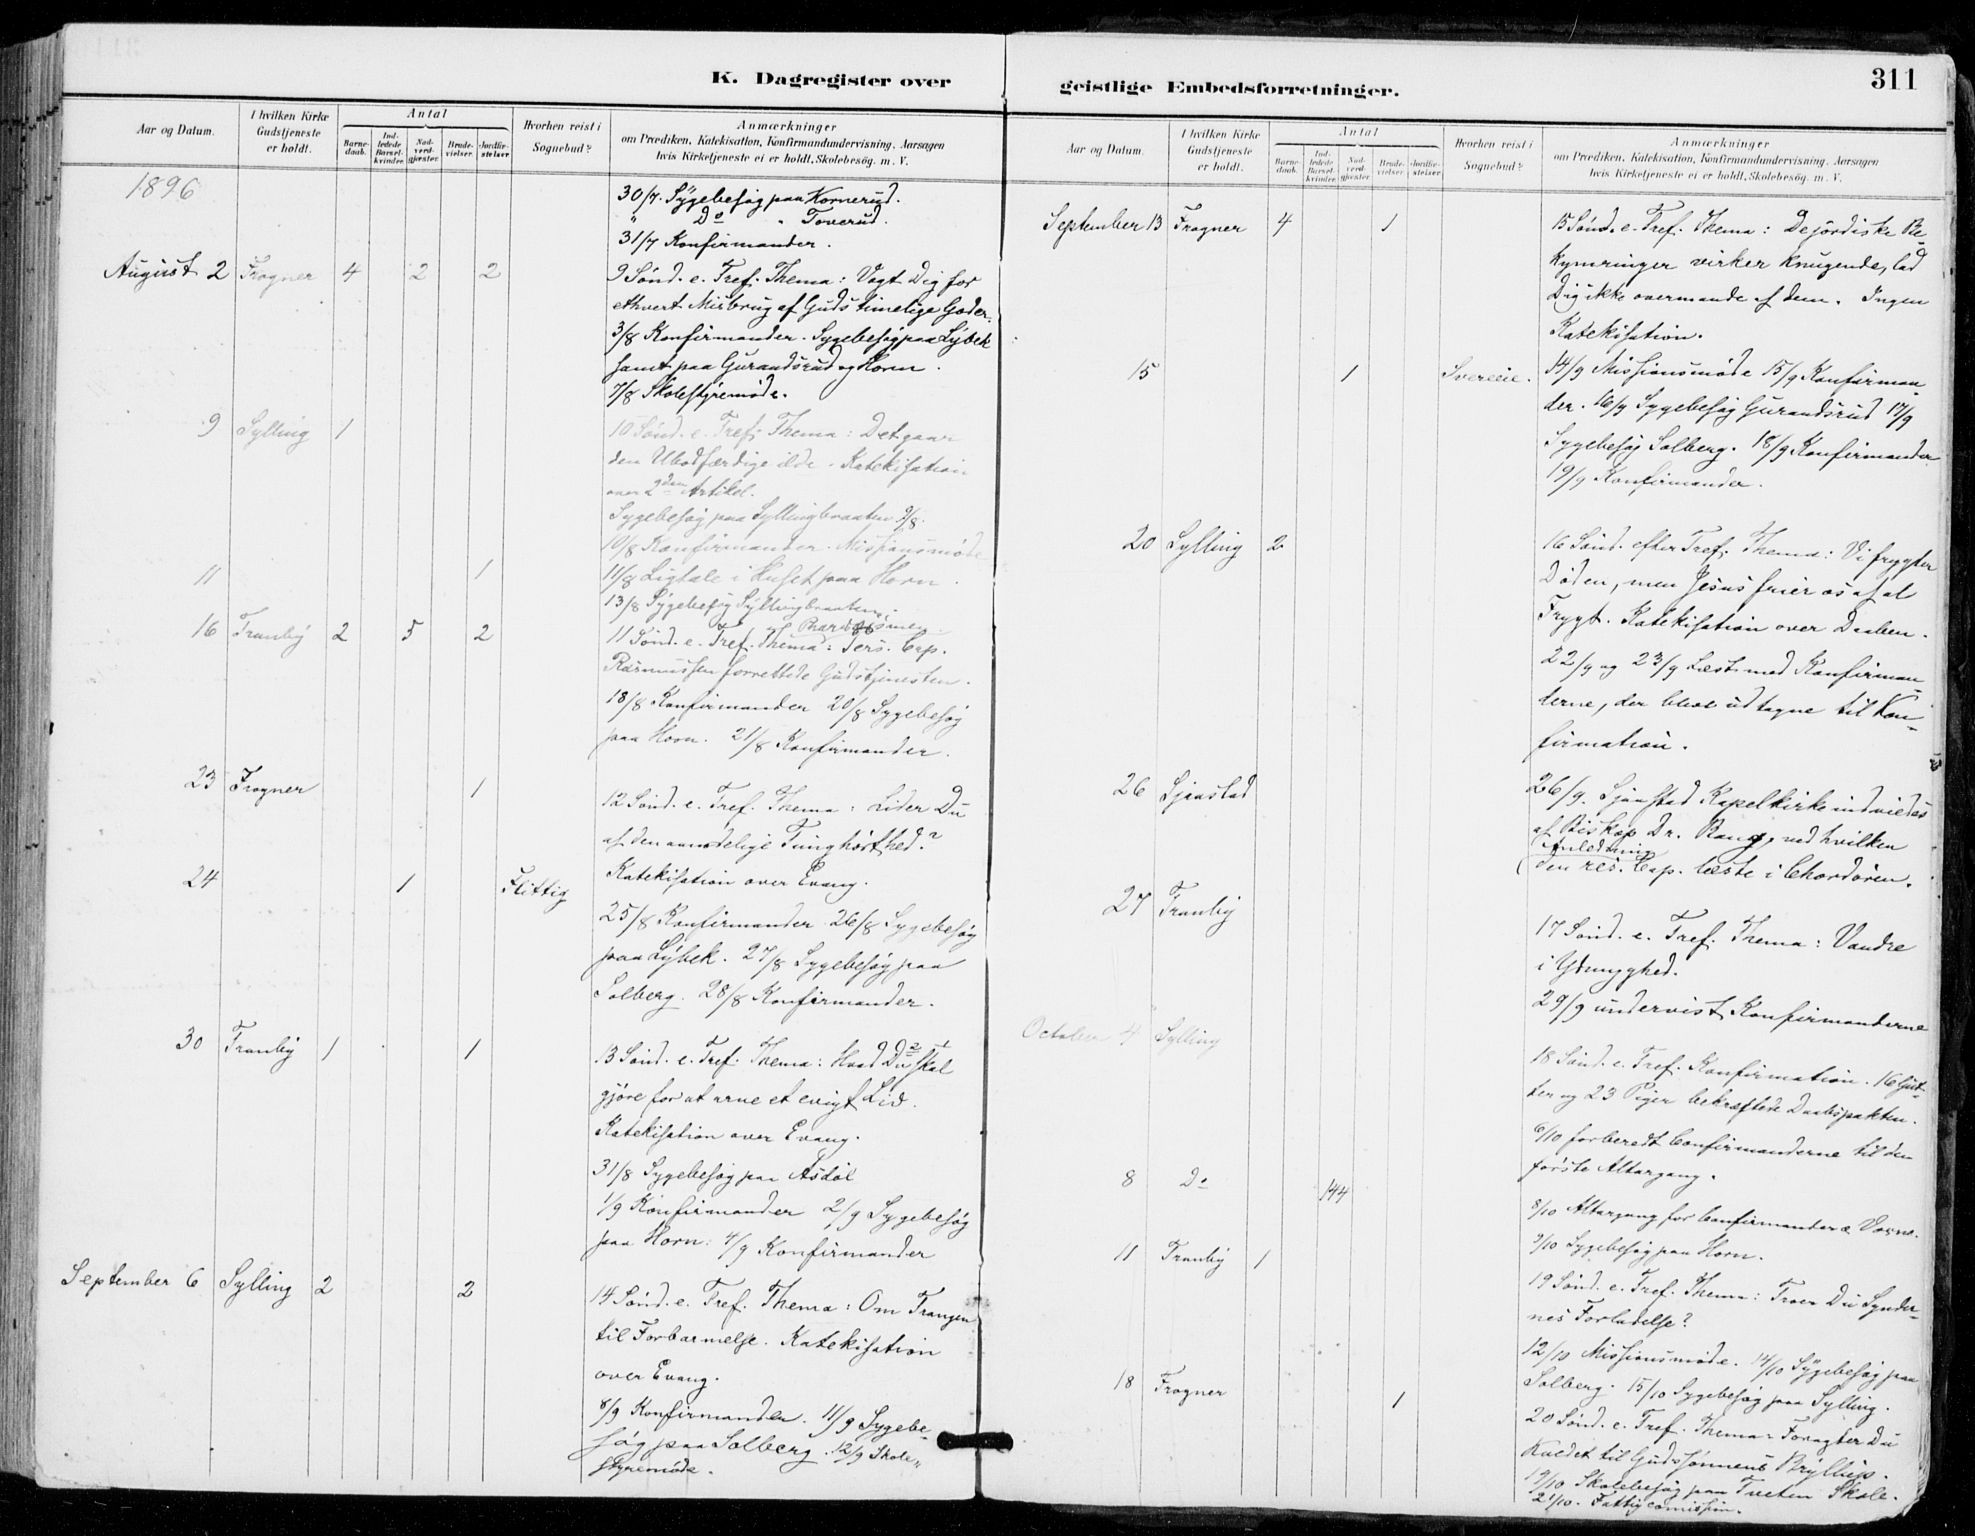 K. Dagregister over
Aar og Datum.
I hvilken Kirke Gudstjeneste er holdt.
Antal
Barnedaab.
Indledede Barselkvinder.
Nadverdgjæster.
Brudevielser.
Jordfæstelser
Hvorhen reist i Sognebud?
Anmærkninger
om Prædiken, Katekisation, Konfirmandundervisning. Aarsagen
hvis Kirketjeneste ei er holdt, Skolebesög. m. V.
1896
30/7. Sygebesøg paa Kornerud.
" Do " Toverud.
31/7 Konfirmander.
August 2 Frogner 4 2 2
9 Sønd. e. Tref. Thema: Vogt Dig for
ethvert Misbrug af Guds timelige Goder.
3/8 Konfirmander. Sygebesøg paa Lybek
samt paa Gurandsrud og Horn.
7/8 Skolestyremøde.
9 Sylling 1
10 Sønd. e. Tref. Thema: Det gaar
den Ubodfærdige ilde. Katekisation
over 2den Artikel.
Sygebesøg paa Syllingbraaten 9/8.
10/8 Konfirmander. Missionsmøde
11 1
11/8 Ligtale i Huset paa Horn.
13/8 Sygebesøg Syllingbraaten.
16 Tranby 2 5 2
11 Sønd. e. Tref. Thema: Pers. Cap.
Rasmussen forrettede Gudstjenesten.
18/8 Konfirmander 20/8 Sygebesøg
paa Horn. 21/8 Konfirmander.
23 Frogner 1
12 Sønd. e. Tref. Thema: Lider Du
af den aandelige Tunghørthed?
24 1 Flittig
Katekisation over Evang.
25/8 Konfirmander 26/8 Sygebesøg
paa Lybek. 27/8 Sygebesøg paa
Solberg. 28/8 Konfirmander.
30 Tranby 1 1
13 Sønd. e. Tref. Thema: Hvad Du skal
gjøre for at arve et evigt Liv.
Katekisation over Evang.
31/8 Sygebesøg paa Asdøl
1/9 Konfirmander 2/9 Sygebesøg
paa Horn: 4/9 Konfirmander
September 6 Sylling 2 2
14 Sønd. e. Tref. Thema: Om Trangen
til Forbarmelse. Katekisation
over Evang.
8/9 Konfirmander. 11/9 Sygebe-
søg paa Solberg. 12/9 Skole-
styremøde.
geistlige Embedsforretninger.
311
Aar og Datum.
I hvilken Kirke Gudstjeneste er holdt.
Antal
Barnedaab.
Indledede Barselkvinder.
Nadverdgjæster.
Brudevielser.
Jordfæstelser
Hvorhen reist i Sognebud?
Anmærkninger
om Prædiken, Katekisation, Konfirmandundervisning. Aarsagen
hvis Kirketjeneste ei er holdt, Skolebesög. m. V.
September 13 Frogner 4 1
15 Sønd. e. Tref. Thema: De jordiske Be-
kymringer virker knugende, lad
Dig ikke overmande af dem. Ingen
Katekisation.
15 1 Svereie.
14/9 Missionsmøde 15/9 Konfirman-
der. 16/9 Sygebesøg Gurandsrud 17/9
Sygebesøg Solberg. 18/9 Konfirmander
19/9 Konfirmander.
20 Sylling 2
16 Sønd. efter Tref. Thema: Vi frygter
Døden, men Jesus frier os af al
Frygt. Katekisation over Daaben.
22/9 og 23/9 Læst med Konfirman-
derne, der blev udtagne til Kon-
firmation.
26 Sjaastad
26/9. Sjaastad Kapelkirke indviedes
af Biskop Dr. Bang, ved hvilken
Anledning
den res. Cap. læste i Chordøren.
27 Tranby
17 Sønd. e. Tref. Thema: Vandre
i Ydmyghed.
29/9 undervist Konfirmanderne
October 4 Sylling
18 Sønd. e. Tref. Konfirmation. 16 Gut-
ter og 23 Piger bekræftede Daabspakten.
6/10 forberedt Confirmanderne til den
første Altergang.
8 Do 144
8/10 Altergang for Confirmander & Voxne.
9/10 Sygebesøg paa Horn.
11 Tranby 1
19 Sønd. e. Tref. Thema: Troer Du Synder-
nes Forladelse?
12/10 Missionsmøde. 14/10 Sygebesøg paa
Solberg. 15/10 Sygebesøg paa Sylling.
18 Frogner 1
20 Sønd. e. Tref. Thema: Foragter Du
Kaldet til Gudssønnens Bryllup.
19/10 Skolebesøg paa Tveten Skole.
21/10. Fattigcomission.